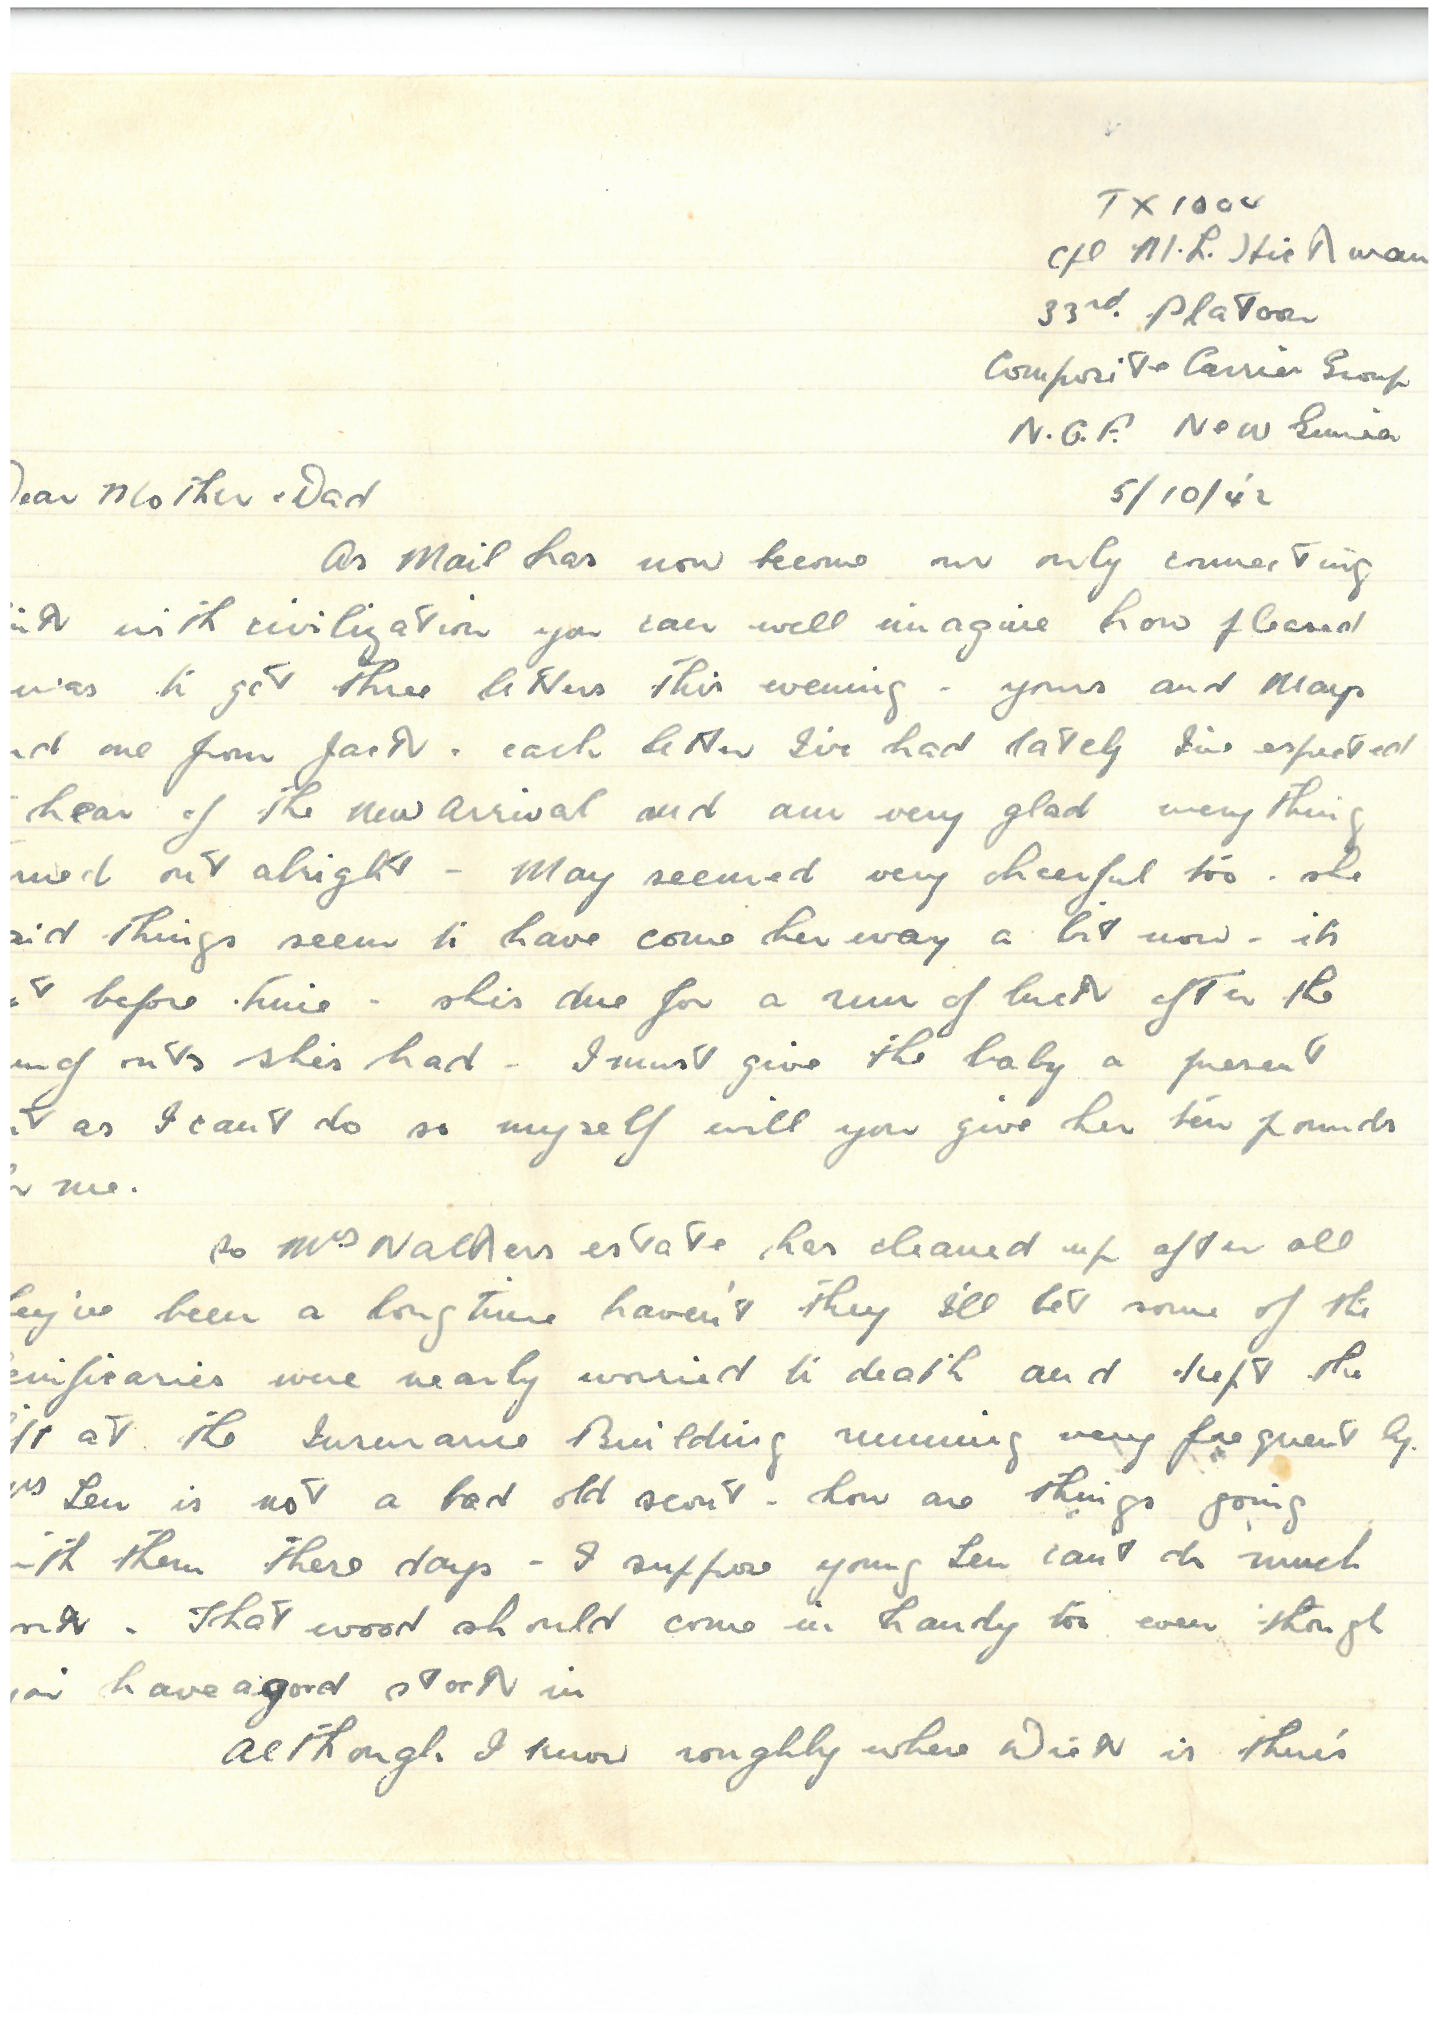 TX1004
Cpl M.L. Hickman
33rd. Platoon
Composite Carrier Group
N.G.F. New Guinea
Dear Mother & Dad 5/10/42
As Mail has now become our only connecting
ink with civilization you can well imagine how pleased
was to get three letters this evening - yours and Mays
nd one from Jack. each letter I've had lately I've expected
hear of the new arrival and am very glad everything
rned out alright - May seemed very cheerful too. she
aid things seem to have come her way a bit now - its
t before time - she's due for a run of luck after the
outs she's had - I must give the baby a present
t as I can't do so myself will you give her ten pounds
r me.
So Mrs Walkers estate has cleaned up after all
hey've been a long time haven't they I'll bet some of the
enificaries were nearly worried to death and kept the
ift at the Insurance Building running very frequently.
rs Len is not a bad old scout - how are things going
ith them these days - I suppose young Len can't do much
ork. That wood should come in handy too even though
you have a good stock in
Although I know roughly where Dick is there's